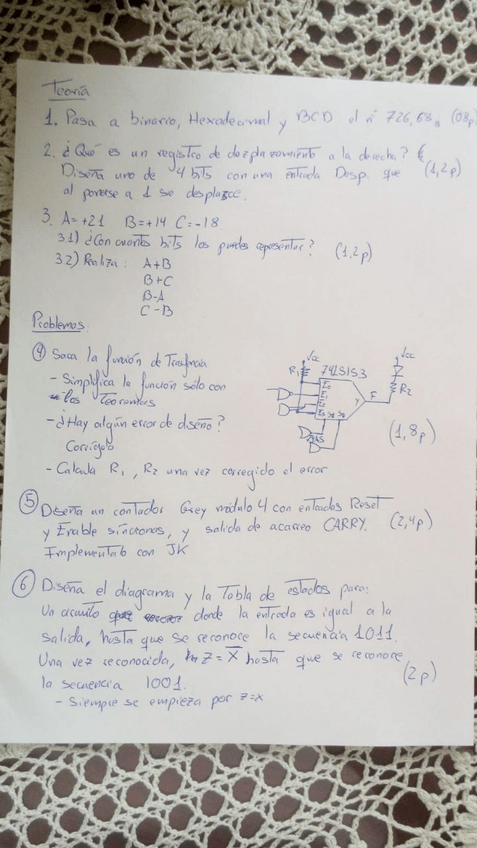 Teoría
1. Pasa a binario, Hexadecimal y BCD el nº 726,68₈ (08p)
2. ¿Qué es un registro de dezplazamiento a la derecha?
Diseña uno de 4 bits con una entrada Desp. que (1,2p)
al ponerse a 1 se desplace.
3. A=+21 B=+14 C=-18
3.1) ¿Con cuantos bits los puedes representar? (1,2p)
3.2) Realiza: A+B
B+C
B-A
C-B
Problemas
4 Saca la función de Trasferencia
- Simplifica la función sólo con
los Teoremas
- ¿Hay algún error de diseño?
Corrígelo
- Calcula R1, R2 una vez corregido el error
Vcc
R1
74LS153
E0
E1
E2
E3
Y
F
Vcc
R2
(1,8p)
5 Diseña un contador Grey módulo 4 con entradas Reset
y Enable síncronos, y salida de acarreo CARRY. (2,4p)
Implementalo con JK
6 Diseña el diagrama y la Tabla de estados para:
Un circuito donde la entrada es igual a la
salida, hasta que se reconoce la secuencia 1011.
Una vez reconocida, Z = X̅ hasta que se reconoce
la secuencia 1001. (2p)
- Siempre se empieza por z=x